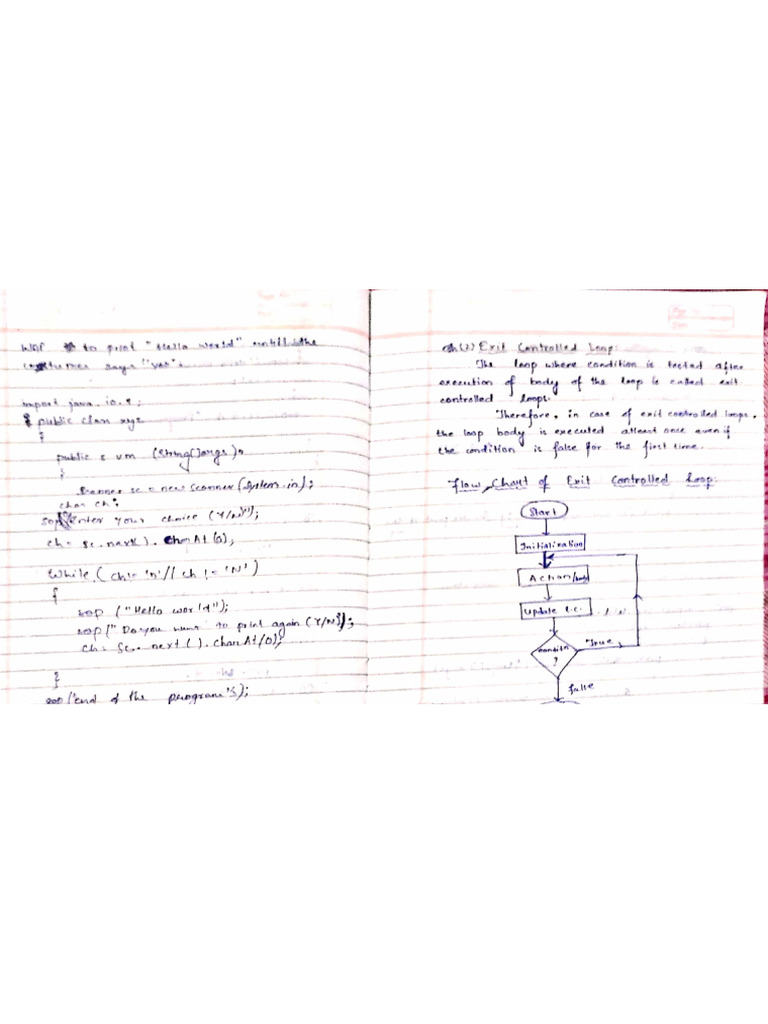 WAP to print "Hello world" untill the
customer says "yes".
import java.io.*;
public class xyz
{
public s v m (String[]args);
{
Scanner sc = new Scanner (System.in);
char ch;
sop("Enter your choice (Y/N)");
ch = sc.next(). CharAt(0);
While (ch != 'n' // ch != 'N')
{
sop ("Hello world");
sop(" Do you want to print again (Y/N)");
ch = Sc. next (). CharAt(0);
}
sop("end of the program");
(2) Exit Controlled Loop:
The loop where condition is tested after
execution of body of the loop is called exit
controlled loop.
Therefore, in case of exit controlled loops,
the loop body is executed atleast once even if
the condition is false for the first time.
Flow Chart of Exit Controlled Loop:
Start
Initialization
Action/body
Update l.c.
Condition
?
True
false